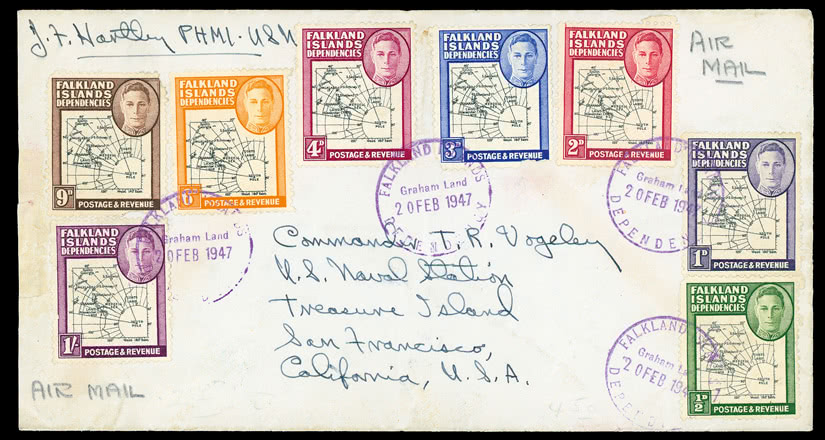 J. F. Hartley PHM1. USN
AIR
MAIL
FALKLAND
ISLANDS
DEPENDENCIES
9D
POSTAGE & REVENUE
FALKLAND
ISLANDS
DEPENDENCIES
6D
POSTAGE & REVENUE
FALKLAND
ISLANDS
DEPENDENCIES
4D
POSTAGE & REVENUE
FALKLAND
ISLANDS
DEPENDENCIES
3D
POSTAGE & REVENUE
FALKLAND
ISLANDS
DEPENDENCIES
2D
POSTAGE & REVENUE
FALKLAND
ISLANDS
DEPENDENCIES
1D
POSTAGE & REVENUE
FALKLAND
ISLANDS
DEPENDENCIES
1/-
POSTAGE & REVENUE
FALKLAND
ISLANDS
DEPENDENCIES
½D
POSTAGE & REVENUE
Graham Land
20 FEB 1947
FALKLAND
Graham Land
20 FEB 1947
FALKLAND
Graham Land
20 FEB 1947
FALKLAND
Graham
20 FEB 1947
Commander T. R. Vogeley
U.S. Naval Station
Treasure Island
San Francisco,
California, U.S.A.
AIR MAIL